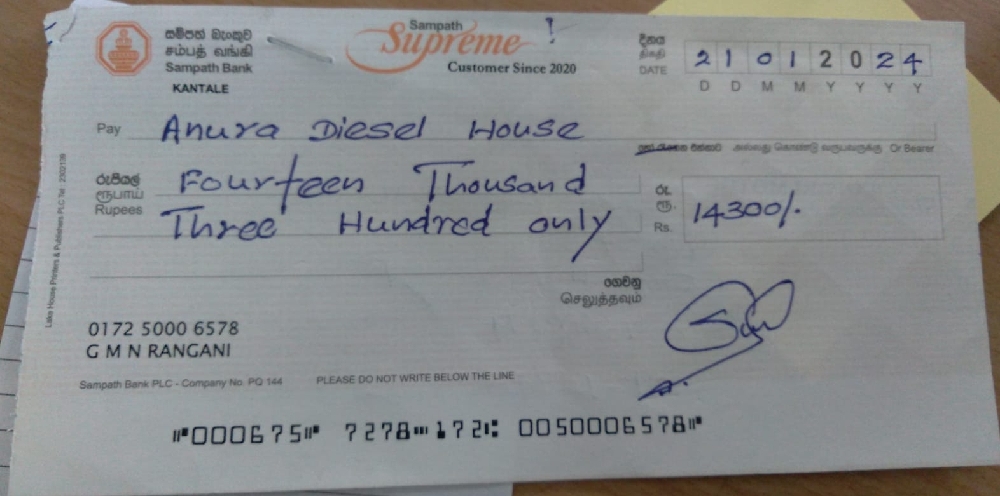 සම්පත් බැංකුව
சம்பத் வங்கி
Sampath Bank
KANTALE
Sampath
Supreme
Customer Since 2020
දිනය
திகதி
DATE
2 1 0 1 2 0 2 4
D D M M Y Y Y Y
Pay Anura Diesel House
அல்லது கொண்டு வருபவருக்கு Or Bearer
රුපියල්
ரூபாய்
Rupees
Fourteen Thousand
Three Hundred only
රු.
ரூ.
Rs.
14300/.
ගෙවනු
செலுத்தவும்
0172 5000 6578
G M N RANGANI
Sampath Bank PLC - Company No. PQ 144 PLEASE DO NOT WRITE BELOW THE LINE
⑈000675⑈ 7278⑉172⑆ 0050006578⑈
Lake House Printers & Publishers PLC Tel: 2302139